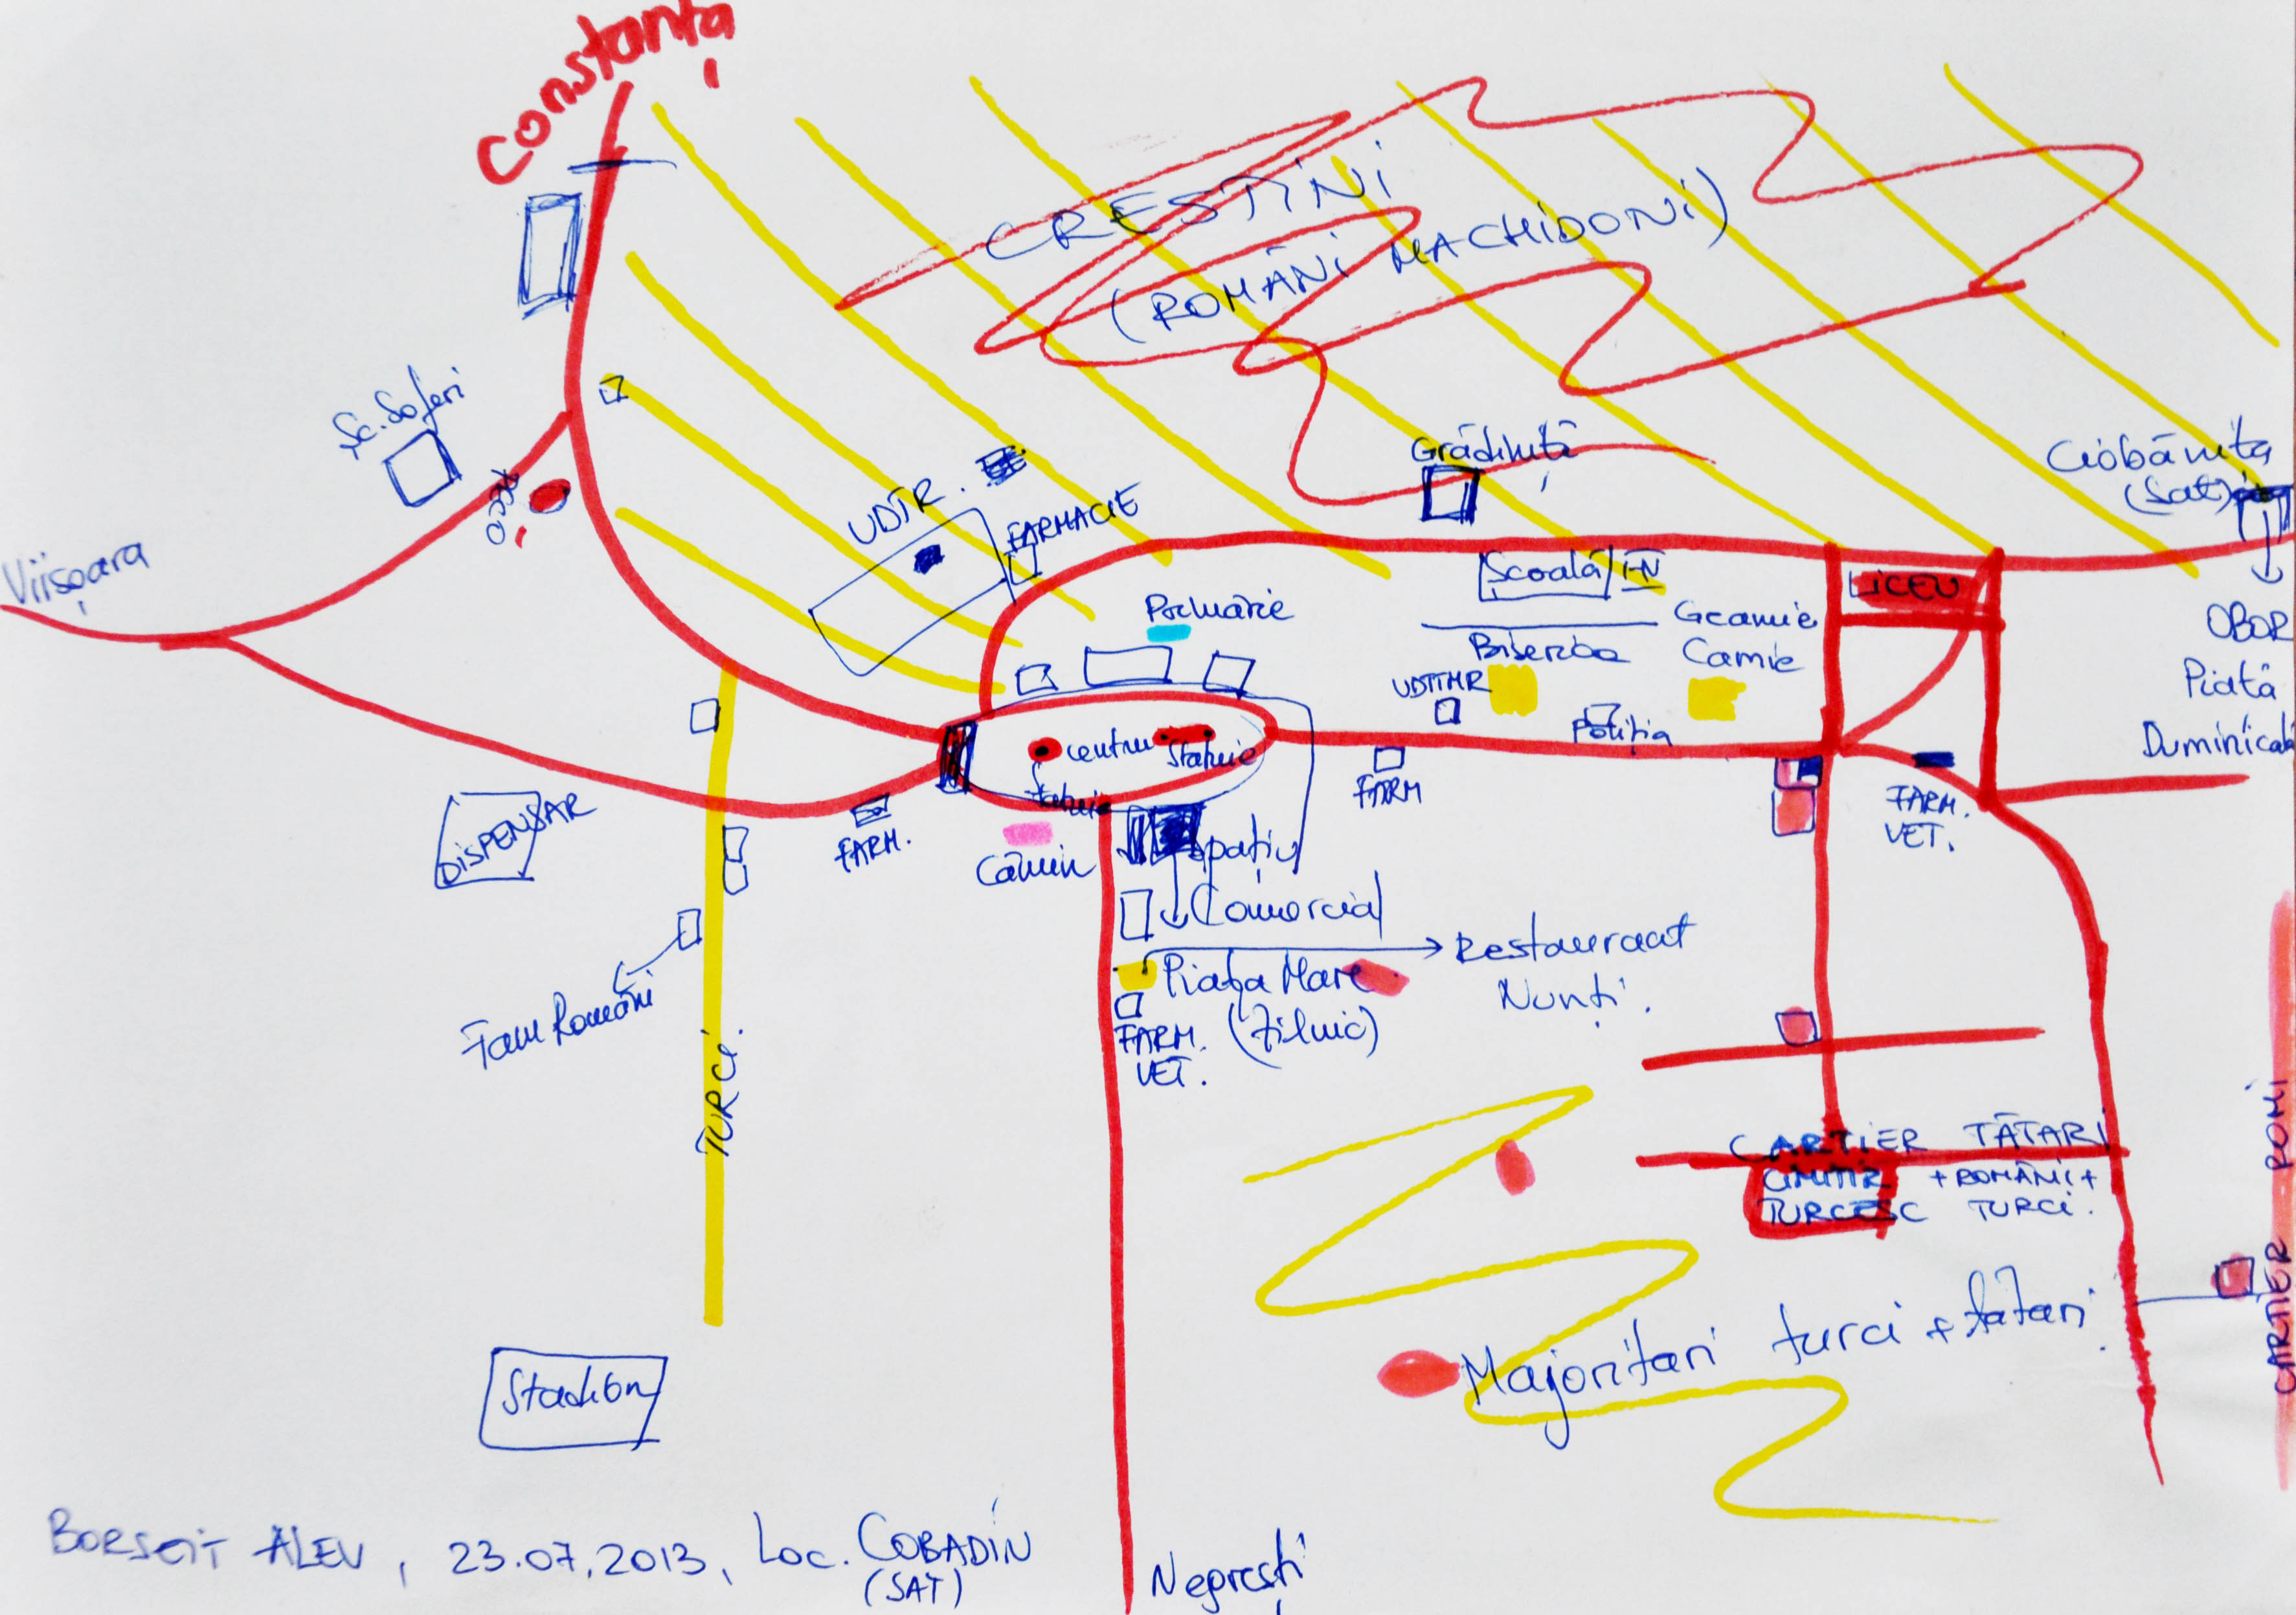 Constanța
CRESTINI
(ROMÂNI MACHIDONI)
Șc. Soferi
Grădiniță
Ciobănița
(Sat)
UDTR.
FARMACIE
Viișoara
Școală I-IV
LICEU
Primărie
Geamie
OBOR
Biserica
Camie
Piată
UDTTMR
Poliția
Duminicală
centru
Statuie
Statuie
FARM
DISPENSAR
FARM.
FARM.
VET.
Cămin
Spațiu
Comercial
Restaurant
Nunți.
Piața Mare
(Zilnic)
FARM.
VET.
Fam Români
TURCI.
CARTIER TĂTARI
+ ROMÂNI +
TURCI.
CIMITIR
TURCESC
CARTIER ROMI
Majoritari turci + tătari
Stadion
BORSEIT ALEV, 23.07.2013, Loc. COBADIN
(SAT)
Negrești